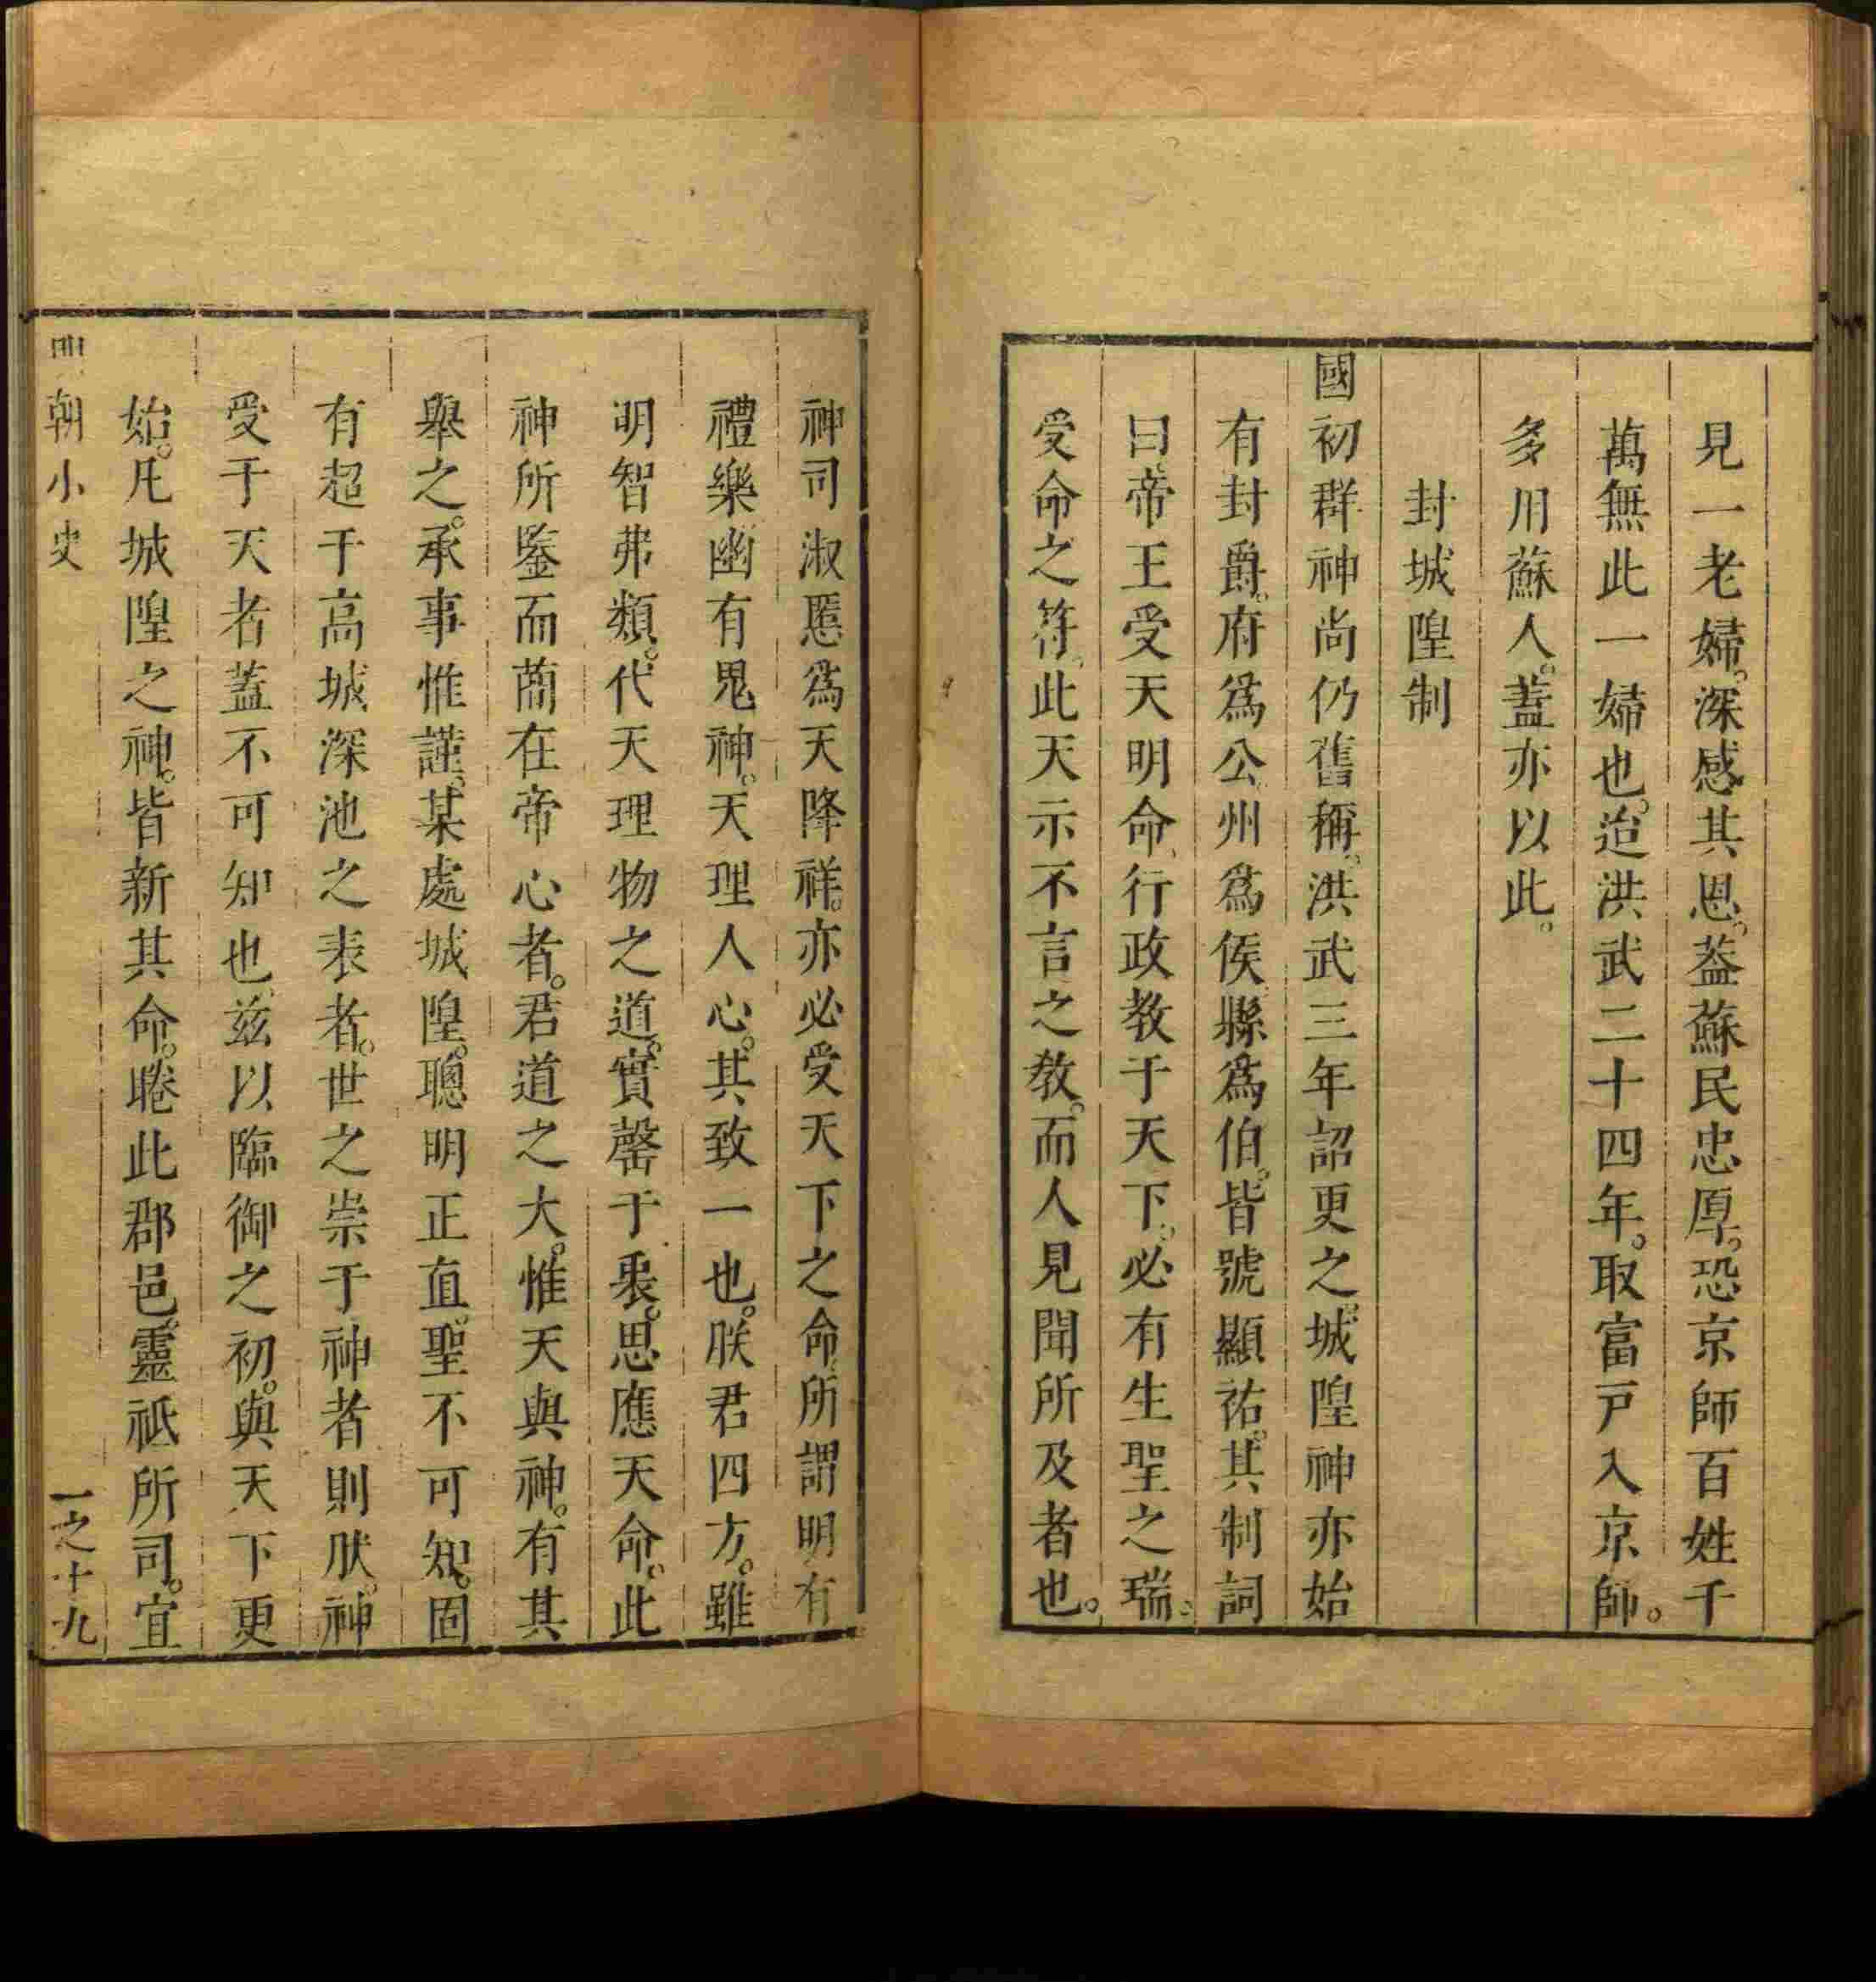 見一老婦。深感其恩。葢蘇民忠厚。恐京師百姓千
萬無此一婦也。迨洪武二十四年。取富戸入京師。
多用蘇人。蓋亦以此。
封城隍制
國初群神尚仍舊稱。洪武三年詔更之。城隍神亦始
有封爵。府爲公、州爲侯、縣爲伯。皆號顯祐。其制詞
曰、帝王受天明命、行政教于天下。必有生聖之瑞。
受命之符、此天示不言之教。而人見聞所及者也。
神司淑慝爲天降祥。亦必受天下之命、所謂明有
禮樂幽有鬼神。天理人心。其致一也。朕君四方。雖
明智弗類。代天理物之道。實罄于衷。思應天命。此
神所鑒而簡在帝心者。君道之大。惟天與神。有其
舉之。承事惟謹。某處城隍。聰明正直。聖不可知。固
有超于高城深池之表者。世之崇于神者則肰。神
受于天者蓋不可知也、茲以臨御之初。與天下更
始。凡城隍之神。皆新其命。睠此郡邑。靈祇所司。宜
明朝小史
一之十九